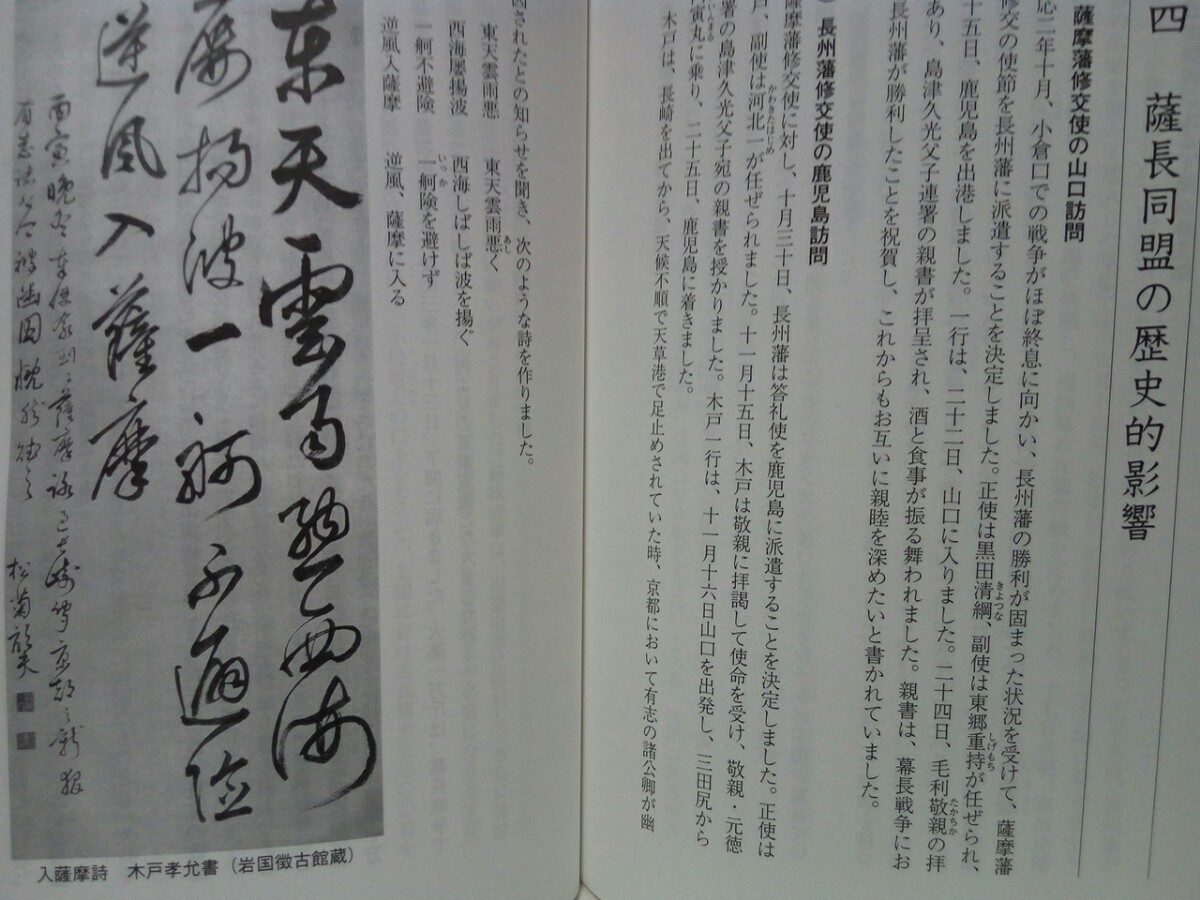 四 薩長同盟の歴史的影響
薩摩藩修交使の山口訪問
応二年十月、小倉口での戦争がほぼ終息に向かい、長州藩の勝利が固まった状況を受けて、薩摩藩
修交の使節を長州藩に派遣することを決定しました。正使は黒田清綱、副使は東郷重持が任ぜられ、
十五日、鹿児島を出港しました。一行は、二十二日、山口に入りました。二十四日、毛利敬親の拝
あり、島津久光父子連署の親書が拝呈され、酒と食事が振る舞われました。親書は、幕長戦争にお
長州藩が勝利したことを祝賀し、これからもお互いに親睦を深めたいと書かれていました。
長州藩修交使の鹿児島訪問
薩摩藩修交使に対し、十月三十日、長州藩は答礼使を鹿児島に派遣することを決定しました。正使は
戸、副使は河北一が任ぜられました。十一月十五日、木戸は敬親に拝謁して使命を受け、敬親・元徳
署の島津久光父子宛の親書を授かりました。木戸一行は、十一月十六日山口を出発し、三田尻から
寅丸に乗り、二十五日、鹿児島に着きました。
木戸は、長崎を出てから、天候不順で天草港で足止めされていた時、京都において有志の諸公卿が幽
囚されたとの知らせを聞き、次のような詩を作りました。
東天雲雨悪 東天雲雨悪く
西海屡揚波 西海しばしば波を揚ぐ
一舸不避険 一舸険を避けず
逆風入薩摩 逆風、薩摩に入る
東天雲雨悪西海
屡揚波一舸不避険
逆風入薩摩
入薩摩詩 木戸孝允書(岩国徴古館蔵)